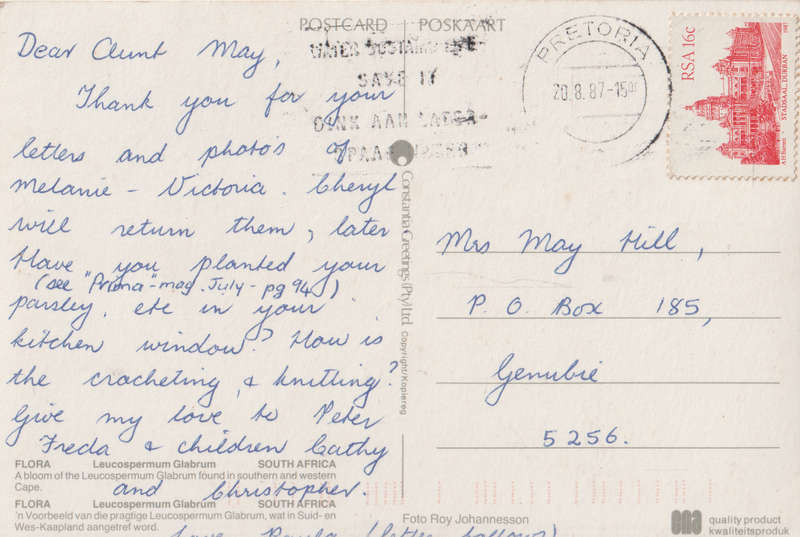 POSTCARD POSKAART
Dear Aunt May,
Thank you for your
letters and photo's of
Melanie - Victoria. Cheryl
will return them, later
Have you planted your
(see "Prima"-mag. July - pg 94)
parsley, etc in your
kitchen window? How is
the crocheting, & knitting?
Give my love to Peter
Freda & children Cathy
and Christopher.
Love (letter follows)
WATER SUSTAINS LIFE
SAVE IT
DINK AAN LATER
SPAAR WATER
PRETORIA
20.8.87-15
RSA 16c
STADSAAL, DURBAN
1987
Constantia Greetings (Pty) Ltd. Copyright/Kopiereg
Mrs May Hill,
P. O. Box 185,
Genubie
5256.
FLORA Leucospermum Glabrum SOUTH AFRICA
A bloom of the Leucospermum Glabrum found in southern and western
Cape.
FLORA Leucospermum Glabrum SOUTH AFRICA
'n Voorbeeld van die pragtige Leucospermum Glabrum, wat in Suid- en
Wes-Kaapland aangetref word.
Foto Roy Johannesson
quality product
kwaliteitsproduk